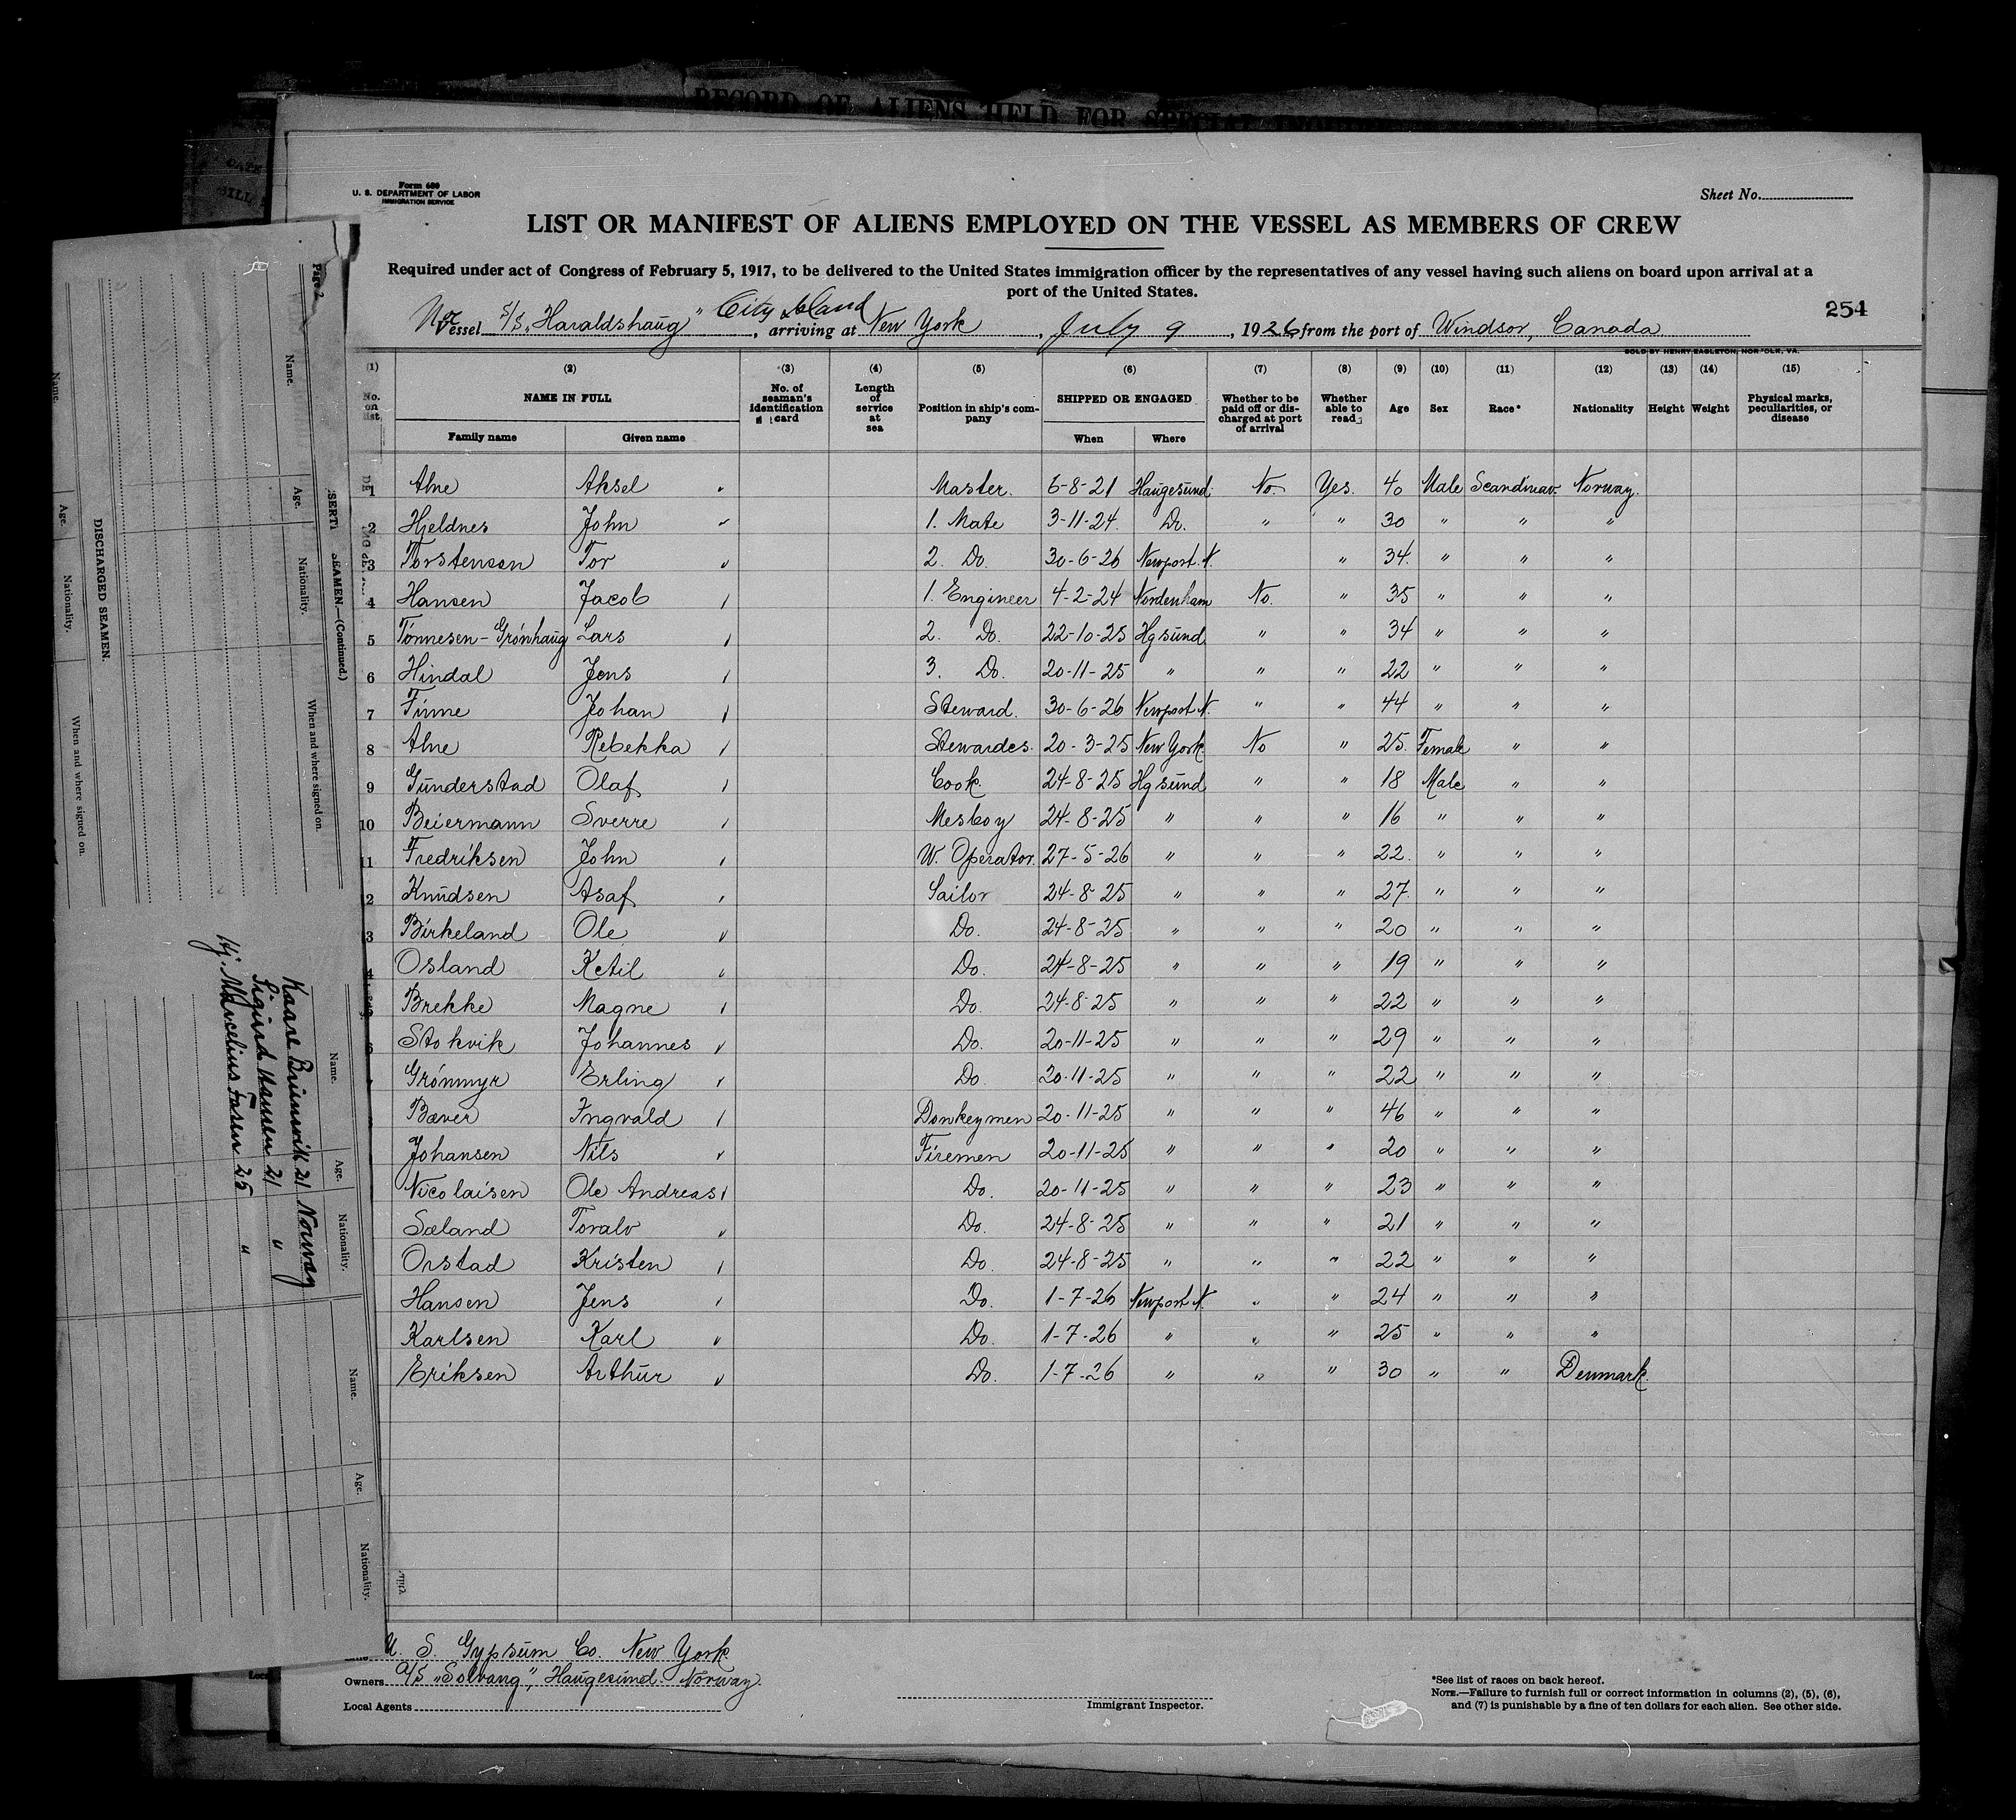 RECORD OF ALIENS HELD FOR SPECIAL
Form 680
U. S. DEPARTMENT OF LABOR
IMMIGRATION SERVICE
Sheet No.
LIST OR MANIFEST OF ALIENS EMPLOYED ON THE VESSEL AS MEMBERS OF CREW
Required under act of Congress of February 5, 1917, to be delivered to the United States immigration officer by the representatives of any vessel having such aliens on board upon arrival at a
port of the United States.
254
City Island
Nor Vessel S/S „Haraldshaug", arriving at New York, July 9, 1926, from the port of Windsor, Canada
SOLD BY HENRY EAGLETON, NORFOLK, VA.
(1) (2) (3) (4) (5) (6) (7) (8) (9) (10) (11) (12) (13) (14) (15)
No. on list NAME IN FULL No. of seaman's identification card Length of service at sea Position in ship's company SHIPPED OR ENGAGED Whether to be paid off or discharged at port of arrival Whether able to read Age Sex Race* Nationality Height Weight Physical marks, peculiarities, or disease
Family name Given name When Where
1 Alne Aksel Master. 6-8-21 Haugesund No. Yes. 40 Male Scandinav. Norway.
2 Hjeldnes John 1. Mate 3-11-24. Do. " " 30 " " "
3 Torstensen Tor 2. Do. 30-6-26 Newport. N. " 34. " " "
4 Hansen Jacob 1. Engineer 4-2-24 Nordenham No. " 35 " " "
5 Tönnesen-Grönhaug Lars 2. Do. 22-10-25 Hgsund " " 34 " " "
6 Hindal Jens 3. Do. 20-11-25 " " " 22 " " "
7 Finne Johan Steward. 30-6-26 Newport N. " " 44 " " "
8 Alne Rebekka Stewardes. 20-3-25 New York No " 25. Female " "
9 Gunderstad Olaf Cook. 24-8-25 Hgsund " " 18 Male " "
10 Beiermann Sverre Messboy 24-8-25 " " " 16 " " "
11 Fredriksen John W. Operator. 27-5-26 " " " 22. " " "
2 Knudsen Asaf Sailor 24-8-25 " " " 27. " " "
3 Birkeland Ole Do. 24-8-25 " " " 20 " " "
Osland Ketil Do. 24-8-25 " " " 19 " " "
Brekke Magne Do. 24-8-25 " " " 22 " " "
6 Stokvik Johannes Do. 20-11-25 " " " 29 " " "
Grönmyr Erling Do. 20-11-25 " " " 22 " " "
Bæver Ingvald Donkeymen 20-11-25 " " " 46 " " "
Johansen Nils Firemen 20-11-25 " " " 20 " " "
Nicolaisen Ole Andreas Do. 20-11-25 " " " 23 " " "
Sæland Toralv Do. 24-8-25 " " " 21 " " "
Orstad Kristen Do. 24-8-25 " " " 22 " " "
Hansen Jens Do. 1-7-26 Newport N. " " 24 " " "
Karlsen Karl Do. 1-7-26 " " " 25 " " "
Eriksen Arthur Do. 1-7-26 " " " 30 " " Denmark.
U. S. Gypsum Co. New York
Owners A/S „Solvang", Haugesund. Norway.
Local Agents
Immigrant Inspector.
*See list of races on back hereof.
NOTE.—Failure to furnish full or correct information in columns (2), (5), (6),
and (7) is punishable by a fine of ten dollars for each alien. See other side.
Page 2
SEAMEN.—(Continued.)
Name. Age. Nationality. When and where signed on.
DISCHARGED SEAMEN.
Name. Age. Nationality. When and where signed on.
Name. Age. Nationality.
Kaare 21 Norway
Sigurd Hansen 21 "
Hj. Marcelius 25 "
Name. Age. Nationality.